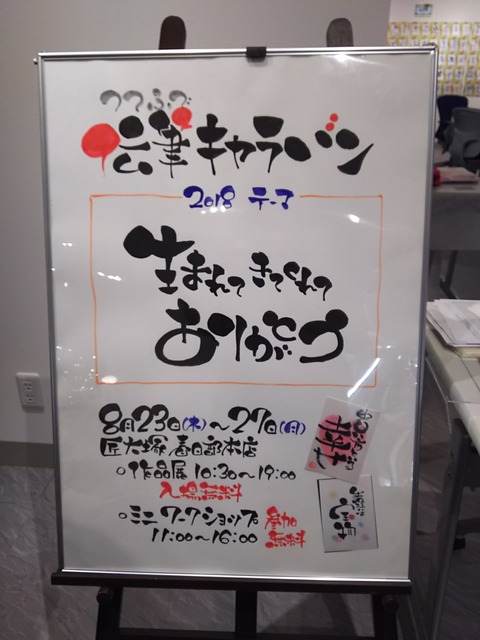 つつふで
伝筆キャラバン
2018 テーマ
生まれて きてくれて
ありがとう
8月23日(木)～27日(月)
匠大塚 春日部本店
○作品展 10:30～19:00
入場無料
○ミニワークショップ 参加
11:00～16:00 無料